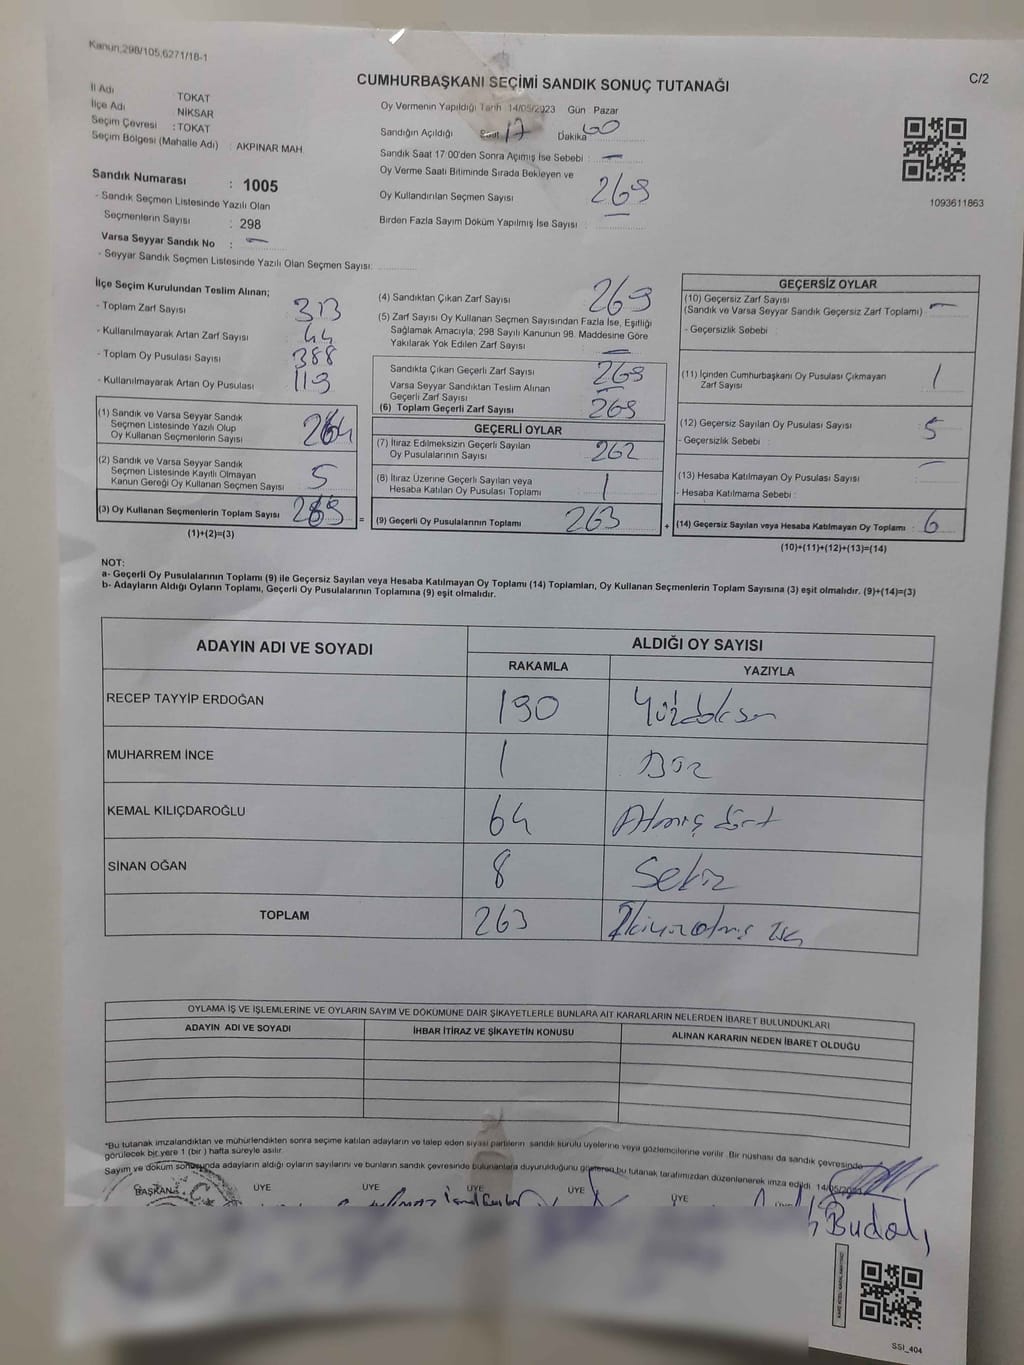 Kanun,298/105,6271/18-1
C/2
CUMHURBAŞKANI SEÇİMİ SANDIK SONUÇ TUTANAĞI
İl Adı TOKAT
İlçe Adı NİKSAR
Seçim Çevresi : TOKAT
Seçim Bölgesi (Mahalle Adı) : AKPINAR MAH.
Sandık Numarası : 1005
- Sandık Seçmen Listesinde Yazılı Olan
Seçmenlerin Sayısı : 298
Varsa Seyyar Sandık No : —
- Seyyar Sandık Seçmen Listesinde Yazılı Olan Seçmen Sayısı:
Oy Vermenin Yapıldığı Tarih 14/05/2023 Gün Pazar
Sandığın Açıldığı Saat 17 Dakika 00
Sandık Saat 17:00'den Sonra Açımış İse Sebebi : —
Oy Verme Saati Bitiminde Sırada Bekleyen ve
Oy Kullandırılan Seçmen Sayısı 269
Birden Fazla Sayım Döküm Yapılmış İse Sayısı :
1093611863
İlçe Seçim Kurulundan Teslim Alınan;
- Toplam Zarf Sayısı 313
- Kullanılmayarak Artan Zarf Sayısı 44
- Toplam Oy Pusulası Sayısı 388
- Kullanılmayarak Artan Oy Pusulası 119
(1) Sandık ve Varsa Seyyar Sandık
Seçmen Listesinde Yazılı Olup
Oy Kullanan Seçmenlerin Sayısı 264
(2) Sandık ve Varsa Seyyar Sandık
Seçmen Listesinde Kayıtlı Olmayan
Kanun Gereği Oy Kullanan Seçmen Sayısı 5
(3) Oy Kullanan Seçmenlerin Toplam Sayısı 269 =
(1)+(2)=(3)
(4) Sandıktan Çıkan Zarf Sayısı 269
(5) Zarf Sayısı Oy Kullanan Seçmen Sayısından Fazla İse, Eşitliği
Sağlamak Amacıyla; 298 Sayılı Kanunun 98. Maddesine Göre
Yakılarak Yok Edilen Zarf Sayısı —
Sandıkta Çıkan Geçerli Zarf Sayısı 269
Varsa Seyyar Sandıktan Teslim Alınan
Geçerli Zarf Sayısı —
(6) Toplam Geçerli Zarf Sayısı 269
GEÇERLİ OYLAR
(7) İtiraz Edilmeksizin Geçerli Sayılan
Oy Pusulalarının Sayısı 262
(8) İtiraz Üzerine Geçerli Sayılan veya
Hesaba Katılan Oy Pusulası Toplamı 1
(9) Geçerli Oy Pusulalarının Toplamı 263 +
GEÇERSİZ OYLAR
(10) Geçersiz Zarf Sayısı
(Sandık ve Varsa Seyyar Sandık Geçersiz Zarf Toplamı) —
- Geçersizlik Sebebi :
(11) İçinden Cumhurbaşkanı Oy Pusulası Çıkmayan
Zarf Sayısı 1
(12) Geçersiz Sayılan Oy Pusulası Sayısı 5
- Geçersizlik Sebebi :
(13) Hesaba Katılmayan Oy Pusulası Sayısı —
- Hesaba Katılmama Sebebi :
(14) Geçersiz Sayılan veya Hesaba Katılmayan Oy Toplamı 6
(10)+(11)+(12)+(13)=(14)
NOT:
a- Geçerli Oy Pusulalarının Toplamı (9) ile Geçersiz Sayılan veya Hesaba Katılmayan Oy Toplamı (14) Toplamları, Oy Kullanan Seçmenlerin Toplam Sayısına (3) eşit olmalıdır. (9)+(14)=(3)
b- Adayların Aldığı Oyların Toplamı, Geçerli Oy Pusulalarının Toplamına (9) eşit olmalıdır.
ADAYIN ADI VE SOYADI ALDIĞI OY SAYISI
RAKAMLA YAZIYLA
RECEP TAYYİP ERDOĞAN 190 Yüzdoksan
MUHARREM İNCE 1 Bir
KEMAL KILIÇDAROĞLU 64 Atmış dört
SİNAN OĞAN 8 Sekiz
TOPLAM 263 İkiyüzatmış üç
OYLAMA İŞ VE İŞLEMLERİNE VE OYLARIN SAYIM VE DÖKÜMÜNE DAİR ŞİKAYETLERLE BUNLARA AİT KARARLARIN NELERDEN İBARET BULUNDUKLARI
ADAYIN ADI VE SOYADI İHBAR İTİRAZ VE ŞİKAYETİN KONUSU ALINAN KARARIN NEDEN İBARET OLDUĞU
*Bu tutanak imzalandıktan ve mühürlendikten sonra seçime katılan adayların ve talep eden siyasi partilerin sandık kurulu üyelerine veya gözlemcilerine verilir. Bir nüshası da sandık çevresinde
görülecek bir yere 1 (bir ) hafta süreyle asılır.
Sayım ve döküm sonucunda adayların aldığı oyların sayılarını ve bunların sandık çevresinde bulunanlara duyurulduğunu gösteren bu tutanak tarafımızdan düzenlenerek imza edildi. 14/05/2023
BAŞKAN ÜYE ÜYE ÜYE ÜYE ÜYE
Budalı
SSI_404